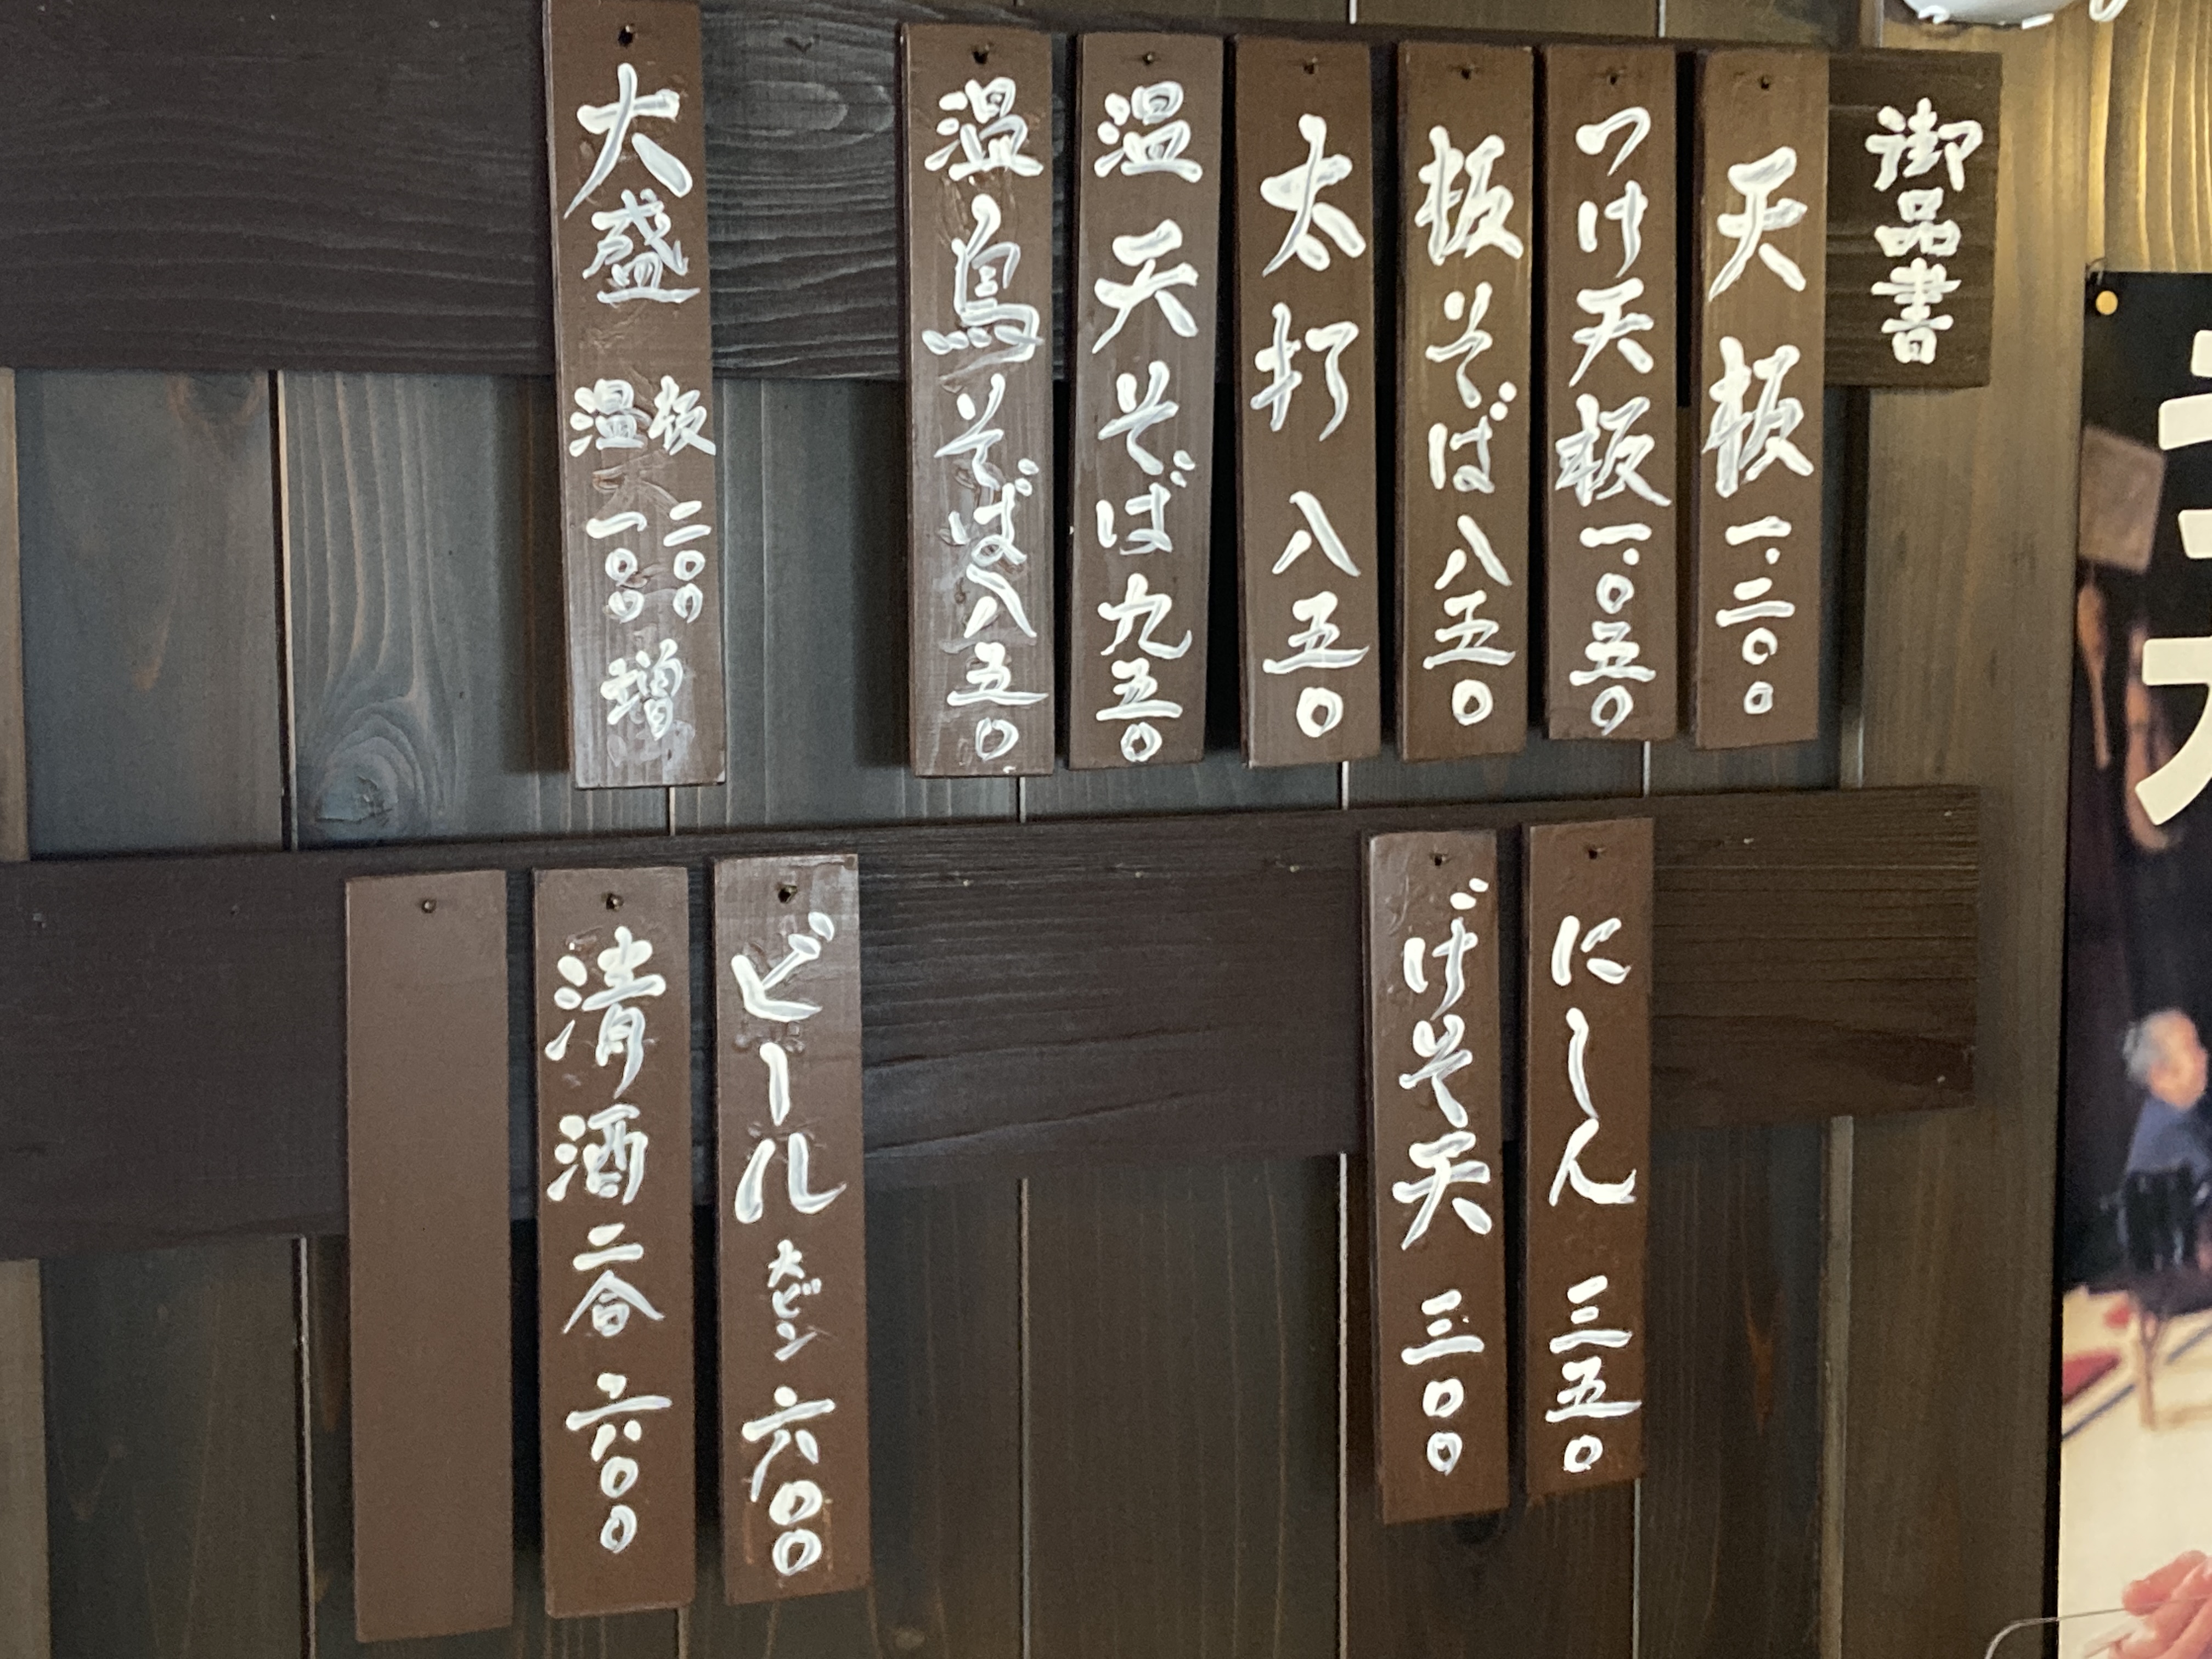 御品書
天板 一.二〇〇
つけ天板 一.〇五〇
板そば 八五〇
太打 八五〇
温天そば 九五〇
温鳥そば 八五〇
大盛 板 二〇〇 温 一〇〇 増
にしん 三五〇
げそ天 三〇〇
ビール 大ビン 六〇〇
清酒 二合 六〇〇